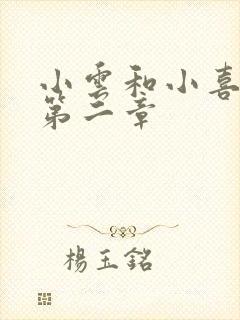 小雲和小喜
第二章
楊玉銘